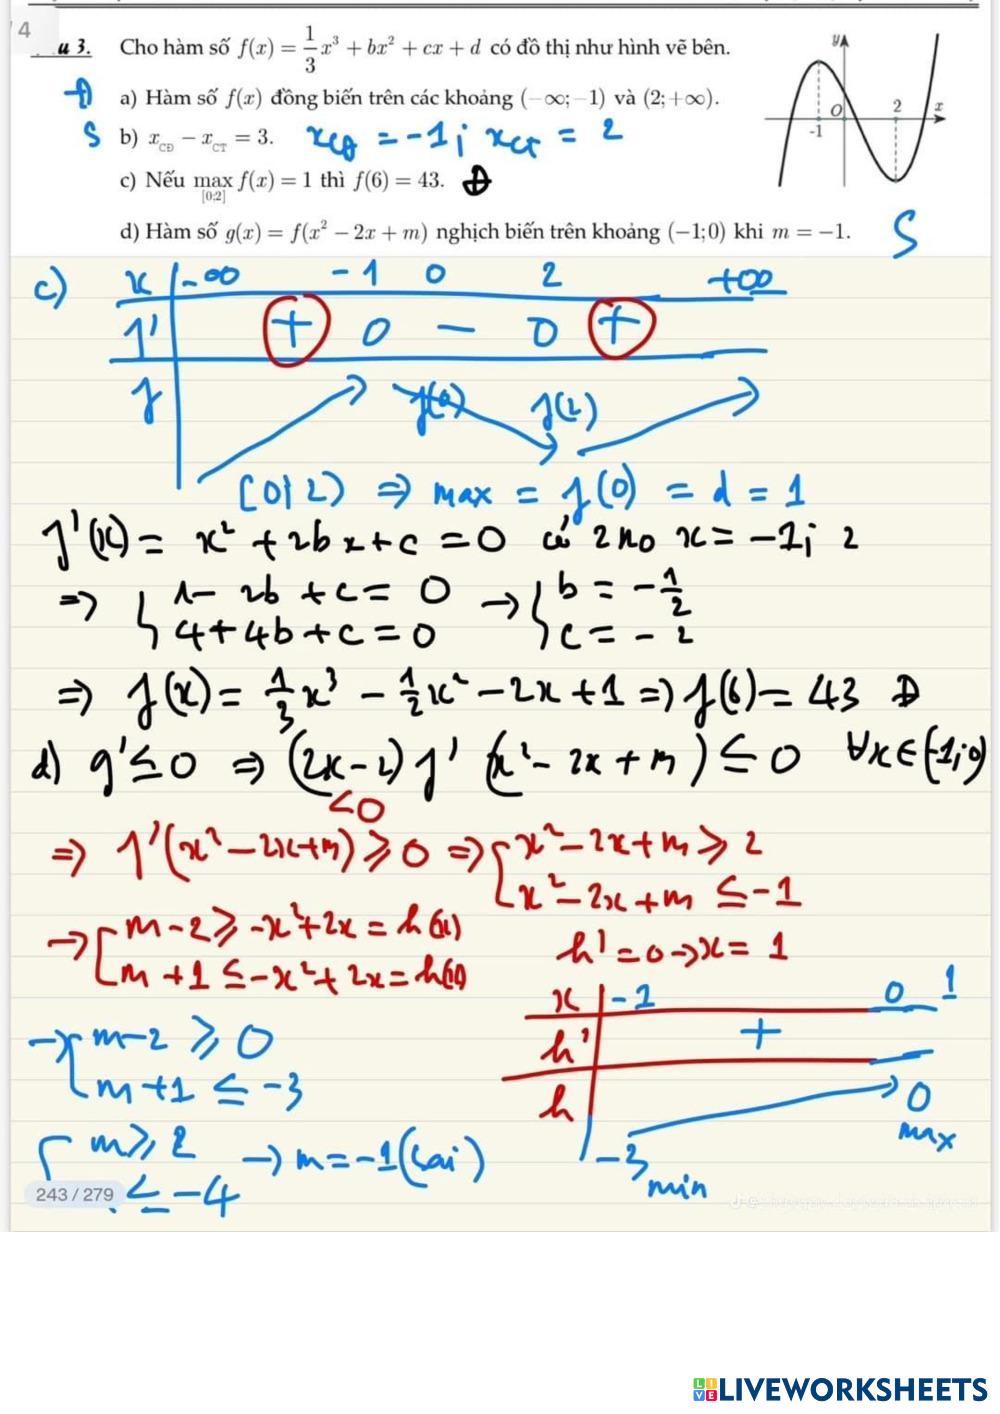 4
u 3. Cho hàm số f(x) = 1/3 x³ + bx² + cx + d có đồ thị như hình vẽ bên.
Đ a) Hàm số f(x) đồng biến trên các khoảng (−∞;−1) và (2;+∞).
S b) x_CĐ − x_CT = 3. x_CĐ = −1; x_CT = 2
c) Nếu max_[0;2] f(x) = 1 thì f(6) = 43. Đ
d) Hàm số g(x) = f(x² − 2x + m) nghịch biến trên khoảng (−1;0) khi m = −1. S
y
O 2 x
-1
c) x −∞ −1 0 2 +∞
f' + 0 − 0 +
f f(0) f(2)
[0;2) ⇒ max = f(0) = d = 1
f'(x) = x² + 2bx + c = 0 có 2 no x = −1; 2
⇒ { 1 − 2b + c = 0 → { b = −1/2
4 + 4b + c = 0 c = −2
⇒ f(x) = 1/3 x³ − 1/2 x² − 2x + 1 ⇒ f(6) = 43 Đ
d) g' ≤ 0 ⇒ (2x − 2) f' (x² − 2x + m) ≤ 0 ∀x ∈ (−1;0)
<0
⇒ f'(x² − 2x + m) ≥ 0 ⇒ [ x² − 2x + m ≥ 2
x² − 2x + m ≤ −1
→ [ m − 2 ≥ −x² + 2x = h(x)
m + 1 ≤ −x² + 2x = h(x)
h' = 0 → x = 1
x −1 0 1
h' +
h −3 min 0 max
→ [ m − 2 ≥ 0
m + 1 ≤ −3
[ m ≥ 2 → m = −1 (sai)
≤ −4
243 / 279
LIVEWORKSHEETS